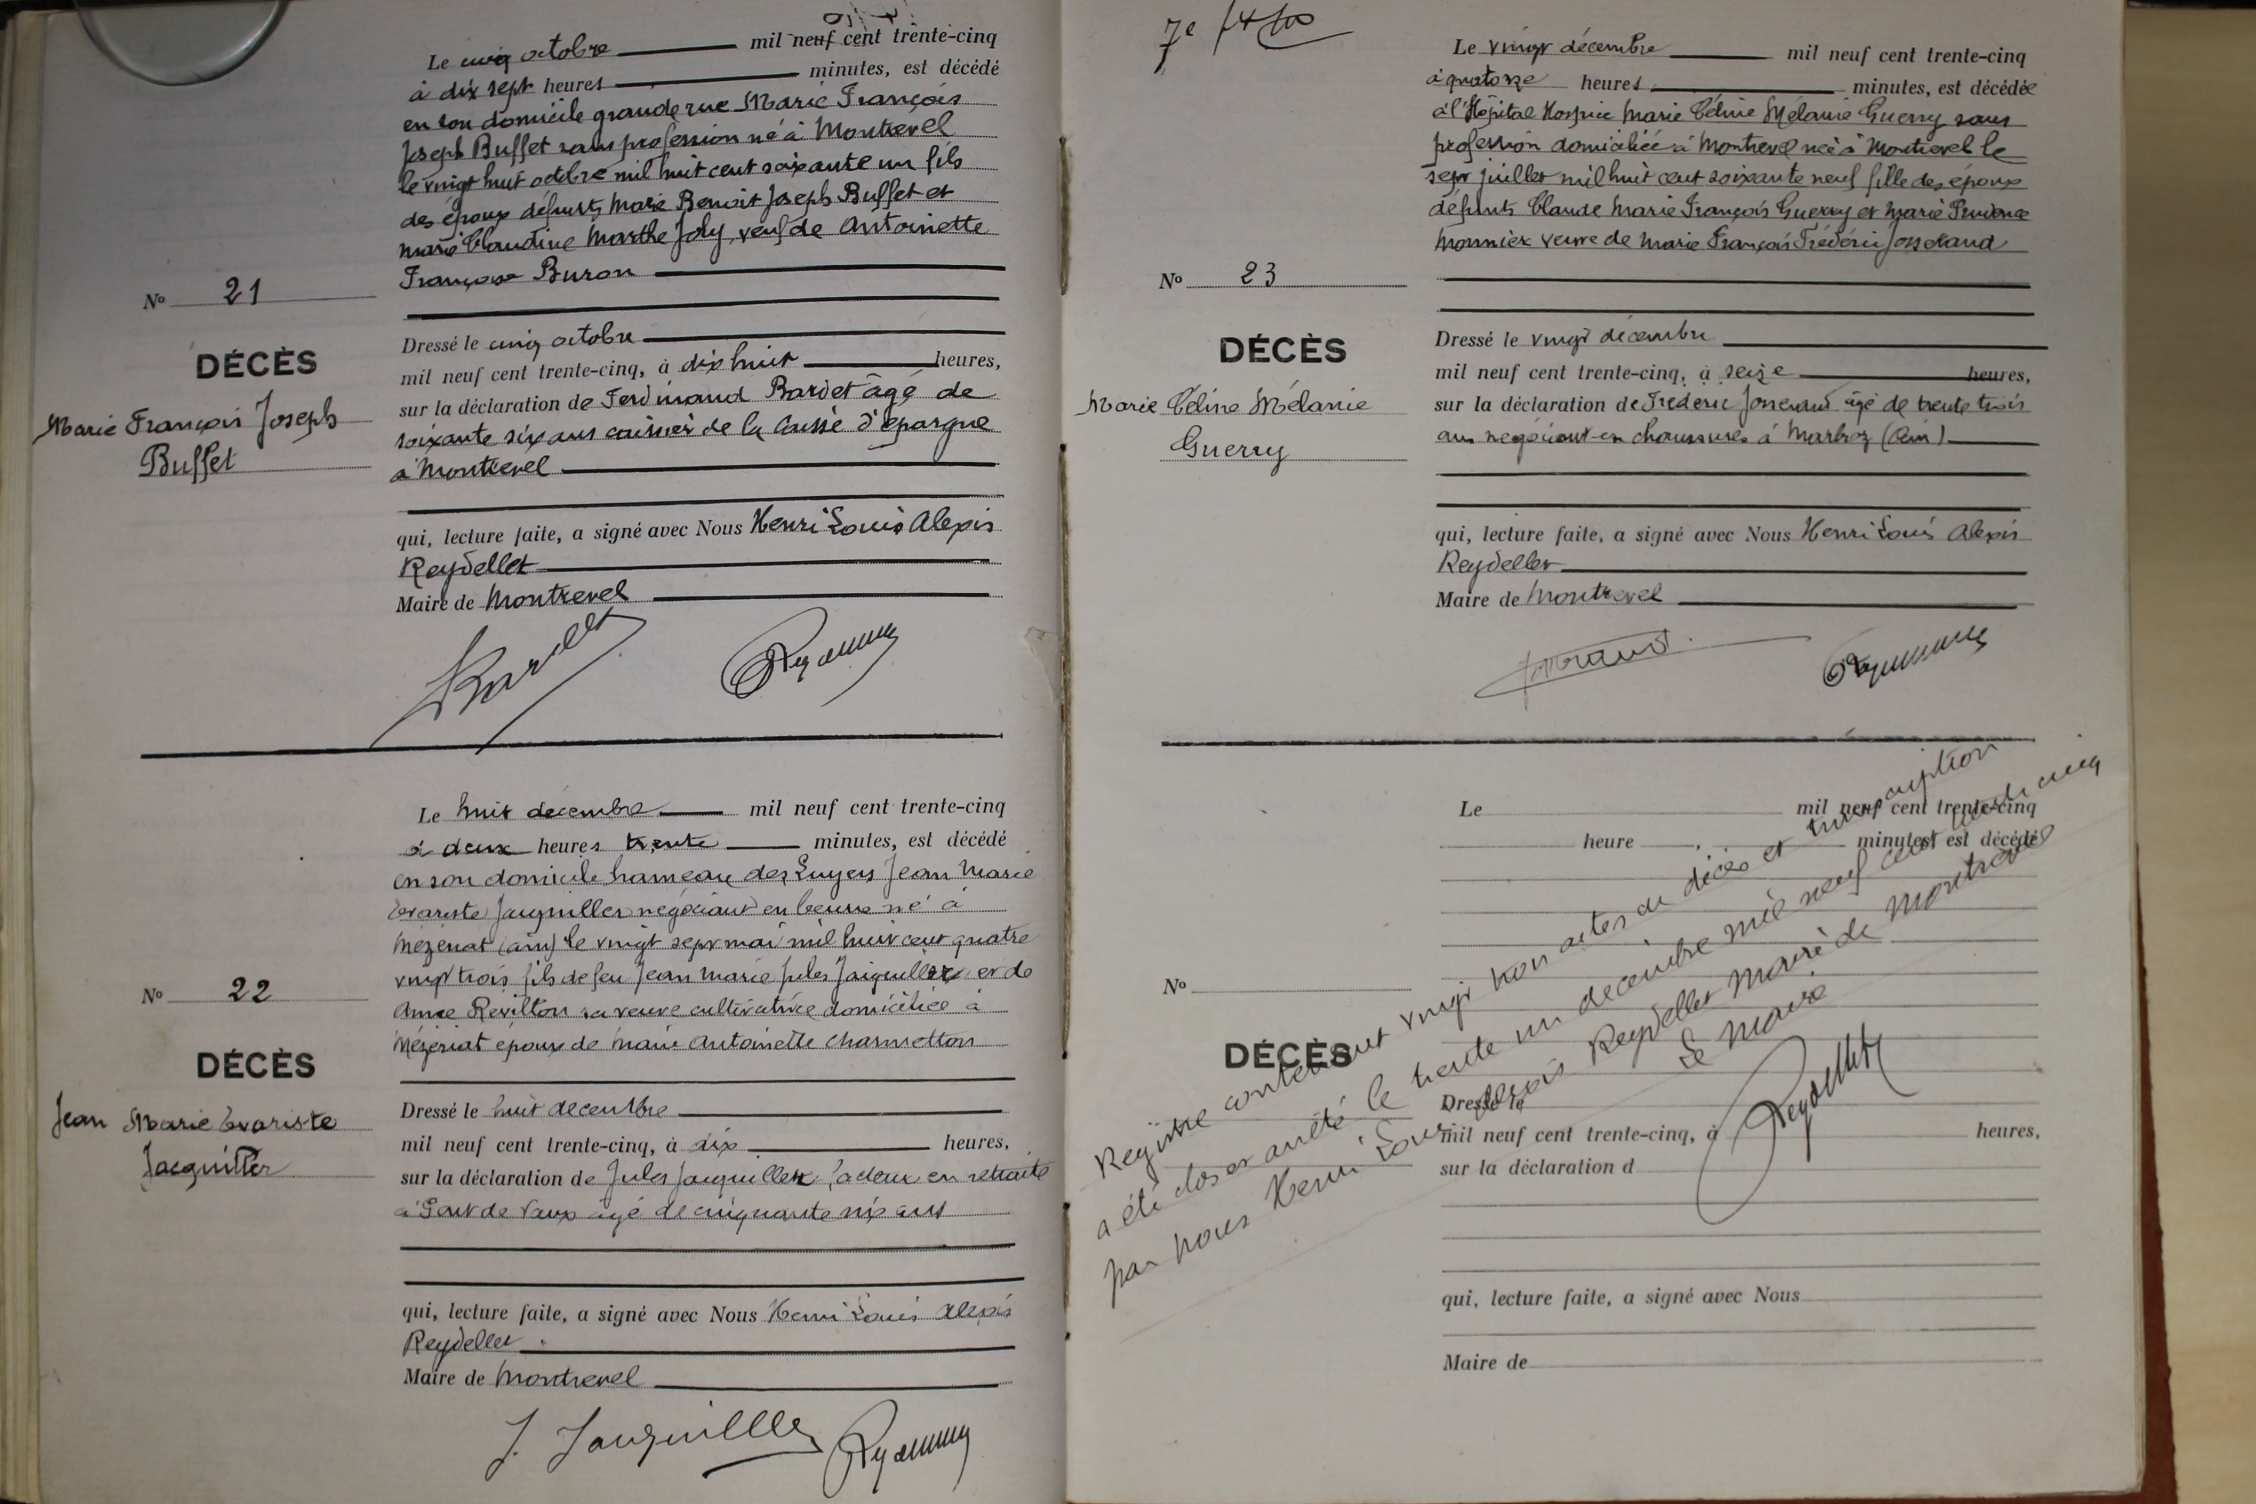 Le cinq octobre mil neuf cent trente-cinq
à dix sept heures minutes, est décédé
en son domicile grande rue Marie François
Joseph Buffet sans profession né à Montrevel
le vingt huit octobre mil huit cent soixante un fils
des époux défunts Marie Benoit Joseph Buffet et
Marie Claudine Marthe Joly, veuf de Antoinette
Françoise Buron
No 21
DÉCÈS
Marie François Joseph
Buffet
Dressé le cinq octobre
mil neuf cent trente-cinq, à dix huit heures,
sur la déclaration de Ferdinand Bardet âgé de
soixante six ans caissier de la Caisse d'épargne
à Montrevel
qui, lecture faite, a signé avec Nous Henri Louis Alexis
Reydellet
Maire de Montrevel
Le huit décembre mil neuf cent trente-cinq
à deux heures trente minutes, est décédé
en son domicile hameau des Luyers Jean Marie
Evariste Jacquiller négociant en beurre né à
Mézériat (Ain) le vingt sept mai mil huit cent quatre
vingt trois fils de feu Jean Marie Jules Jacquiller et de
Anne Revillon sa veuve cultivatrice domiciliée à
Mézériat époux de Marie Antoinette Charmetton
No 22
DÉCÈS
Jean Marie Evariste
Jacquiller
Dressé le huit décembre
mil neuf cent trente-cinq, à dix heures,
sur la déclaration de Jules Jacquiller facteur en retraite
à Pont de Vaux âgé de cinquante six ans
qui, lecture faite, a signé avec Nous Henri Louis Alexis
Reydellet
Maire de Montrevel
J. Jacquiller
7e
Le vingt décembre mil neuf cent trente-cinq
à quatorze heures minutes, est décédée
à l'Hôpital Hospice Marie Céline Mélanie Guerry sans
profession domiciliée à Montrevel née à Montrevel le
sept juillet mil huit cent soixante neuf fille des époux
défunts Claude Marie François Guerry et Marie Prudence
Monnier veuve de Marie François Frédéric Josserand
No 23
DÉCÈS
Marie Céline Mélanie
Guerry
Dressé le vingt décembre
mil neuf cent trente-cinq, à seize heures,
sur la déclaration de Frédéric Josserand âgé de trente trois
ans négociant en chaussures à Marboz (Ain)
qui, lecture faite, a signé avec Nous Henri Louis Alexis
Reydellet
Maire de Montrevel
Le mil neuf cent trente-cinq
heure minutes, est décédé
No
DÉCÈS
Dressé le
mil neuf cent trente-cinq, à heures,
sur la déclaration d
qui, lecture faite, a signé avec Nous
Maire de
Registre contenant vingt trois actes de décès et transcription
a été clos et arrêté le trente un décembre mil neuf cent trente cinq
par nous Henri Louis Alexis Reydellet Maire de Montrevel
Le Maire
Reydellet